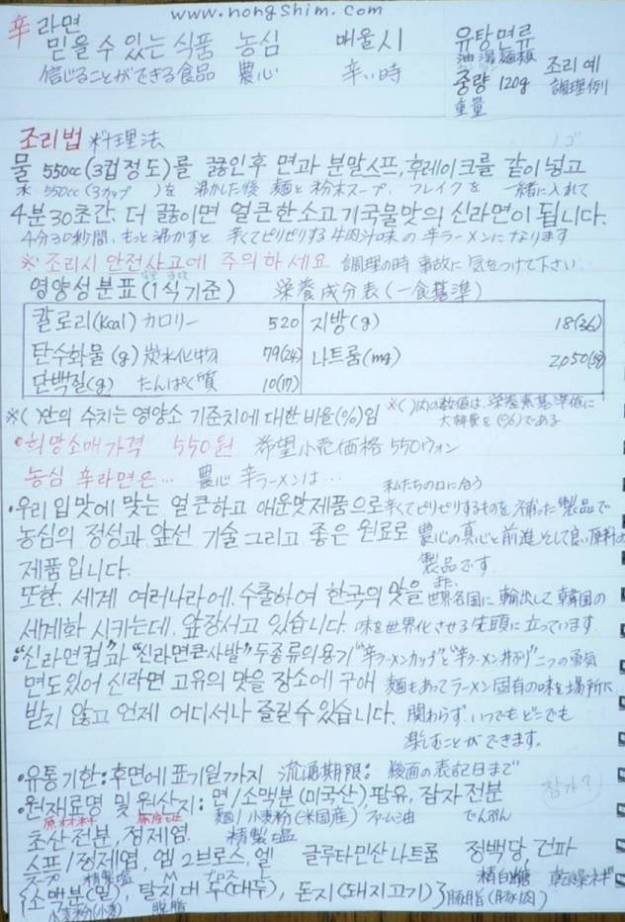 www.nongshim.com
辛 라면
믿을 수 있는 식품 농심 매울시 유탕면류
油湯麺類
信じることができる食品 農心 辛い時 중량 120g 조리 예
重量 調理例
조리법 料理法
물 550cc(3컵정도)를 끓인후 면과 분말스프, 후레이크를 같이 넣고
水 550cc(3カップ )を 沸かした後 麺と 粉末スープ、フレイクを 一緒に入れて
4분30초간 더 끓이면 얼큰한소고기국물맛의 신라면이 됩니다.
4分30秒間、もっと沸かすと 辛くてピリピリする牛肉汁味の辛ラーメンになります
※ 조리시 안전사고에 주의하세요 調理の時 事故に 気をつけて下さい
영양성분표(1식기준) 栄養成分表(一食基準)
칼로리(Kcal) カロリー 520 지방(g) 18(36)
탄수화물(g) 炭水化物 79(24) 나트륨(mg) 2,050(58)
단백질(g) たんぱく質 10(17)
※( )안의 수치는 영양소 기준치에 대한 비율(%)임 ※( )内の数値は、栄養素基準値に
(%)である
•희망소매가격 550원 希望小売価格 550ウォン
농심 辛라면은… 農心 辛ラーメンは…
私たちの口に合う
•우리 입맛에 맞는 얼큰하고 매운맛제품으로 辛くてピリピリするものを 補った製品で
농심의 정성과 앞선 기술 그리고 좋은 원료로 農心の真心と前進そして良い原料の
제품입니다. 製品です
또한, 세계 여러나라에 수출하여 한국의 맛을 また、世界各国に輸出して韓国の
세계화 시키는데 앞장서고 있습니다. 味を世界化させる先頭に立っています.
•"신라면컵"과 "신라면큰사발" 두종류의용기 "辛ラーメンカップ"と"辛ラーメン丼ぶり"二つの勇気
면도있어 신라면 고유의 맛을 장소에 구애 麺もあってラーメン固有の味を場所に
받지 않고 언제 어디서나 즐길수있습니다. 関わらず いつでもどこでも
楽しむことが できます。
•유통기한: 후면에 표기일까지 流通期限: 後面の表記日まで
•원재료명 및 원산지: 면/소맥분(미국산), 팜유, 감자전분
原材料 原産地 麺/小麦粉(米国産) ファーム油 でんぷん
초산전분, 정제염 精製塩
스프/정제염, 엠2브로스, 엘 글루타민산나트륨 정백당, 건파
スープ 精製塩 M ブロス L 精白糖 乾燥ネギ
{소맥분(밀), 탈지대두(대두), 돈지(돼지고기)} 豚脂(豚肉)
小麦粉(小麦) 脱脂